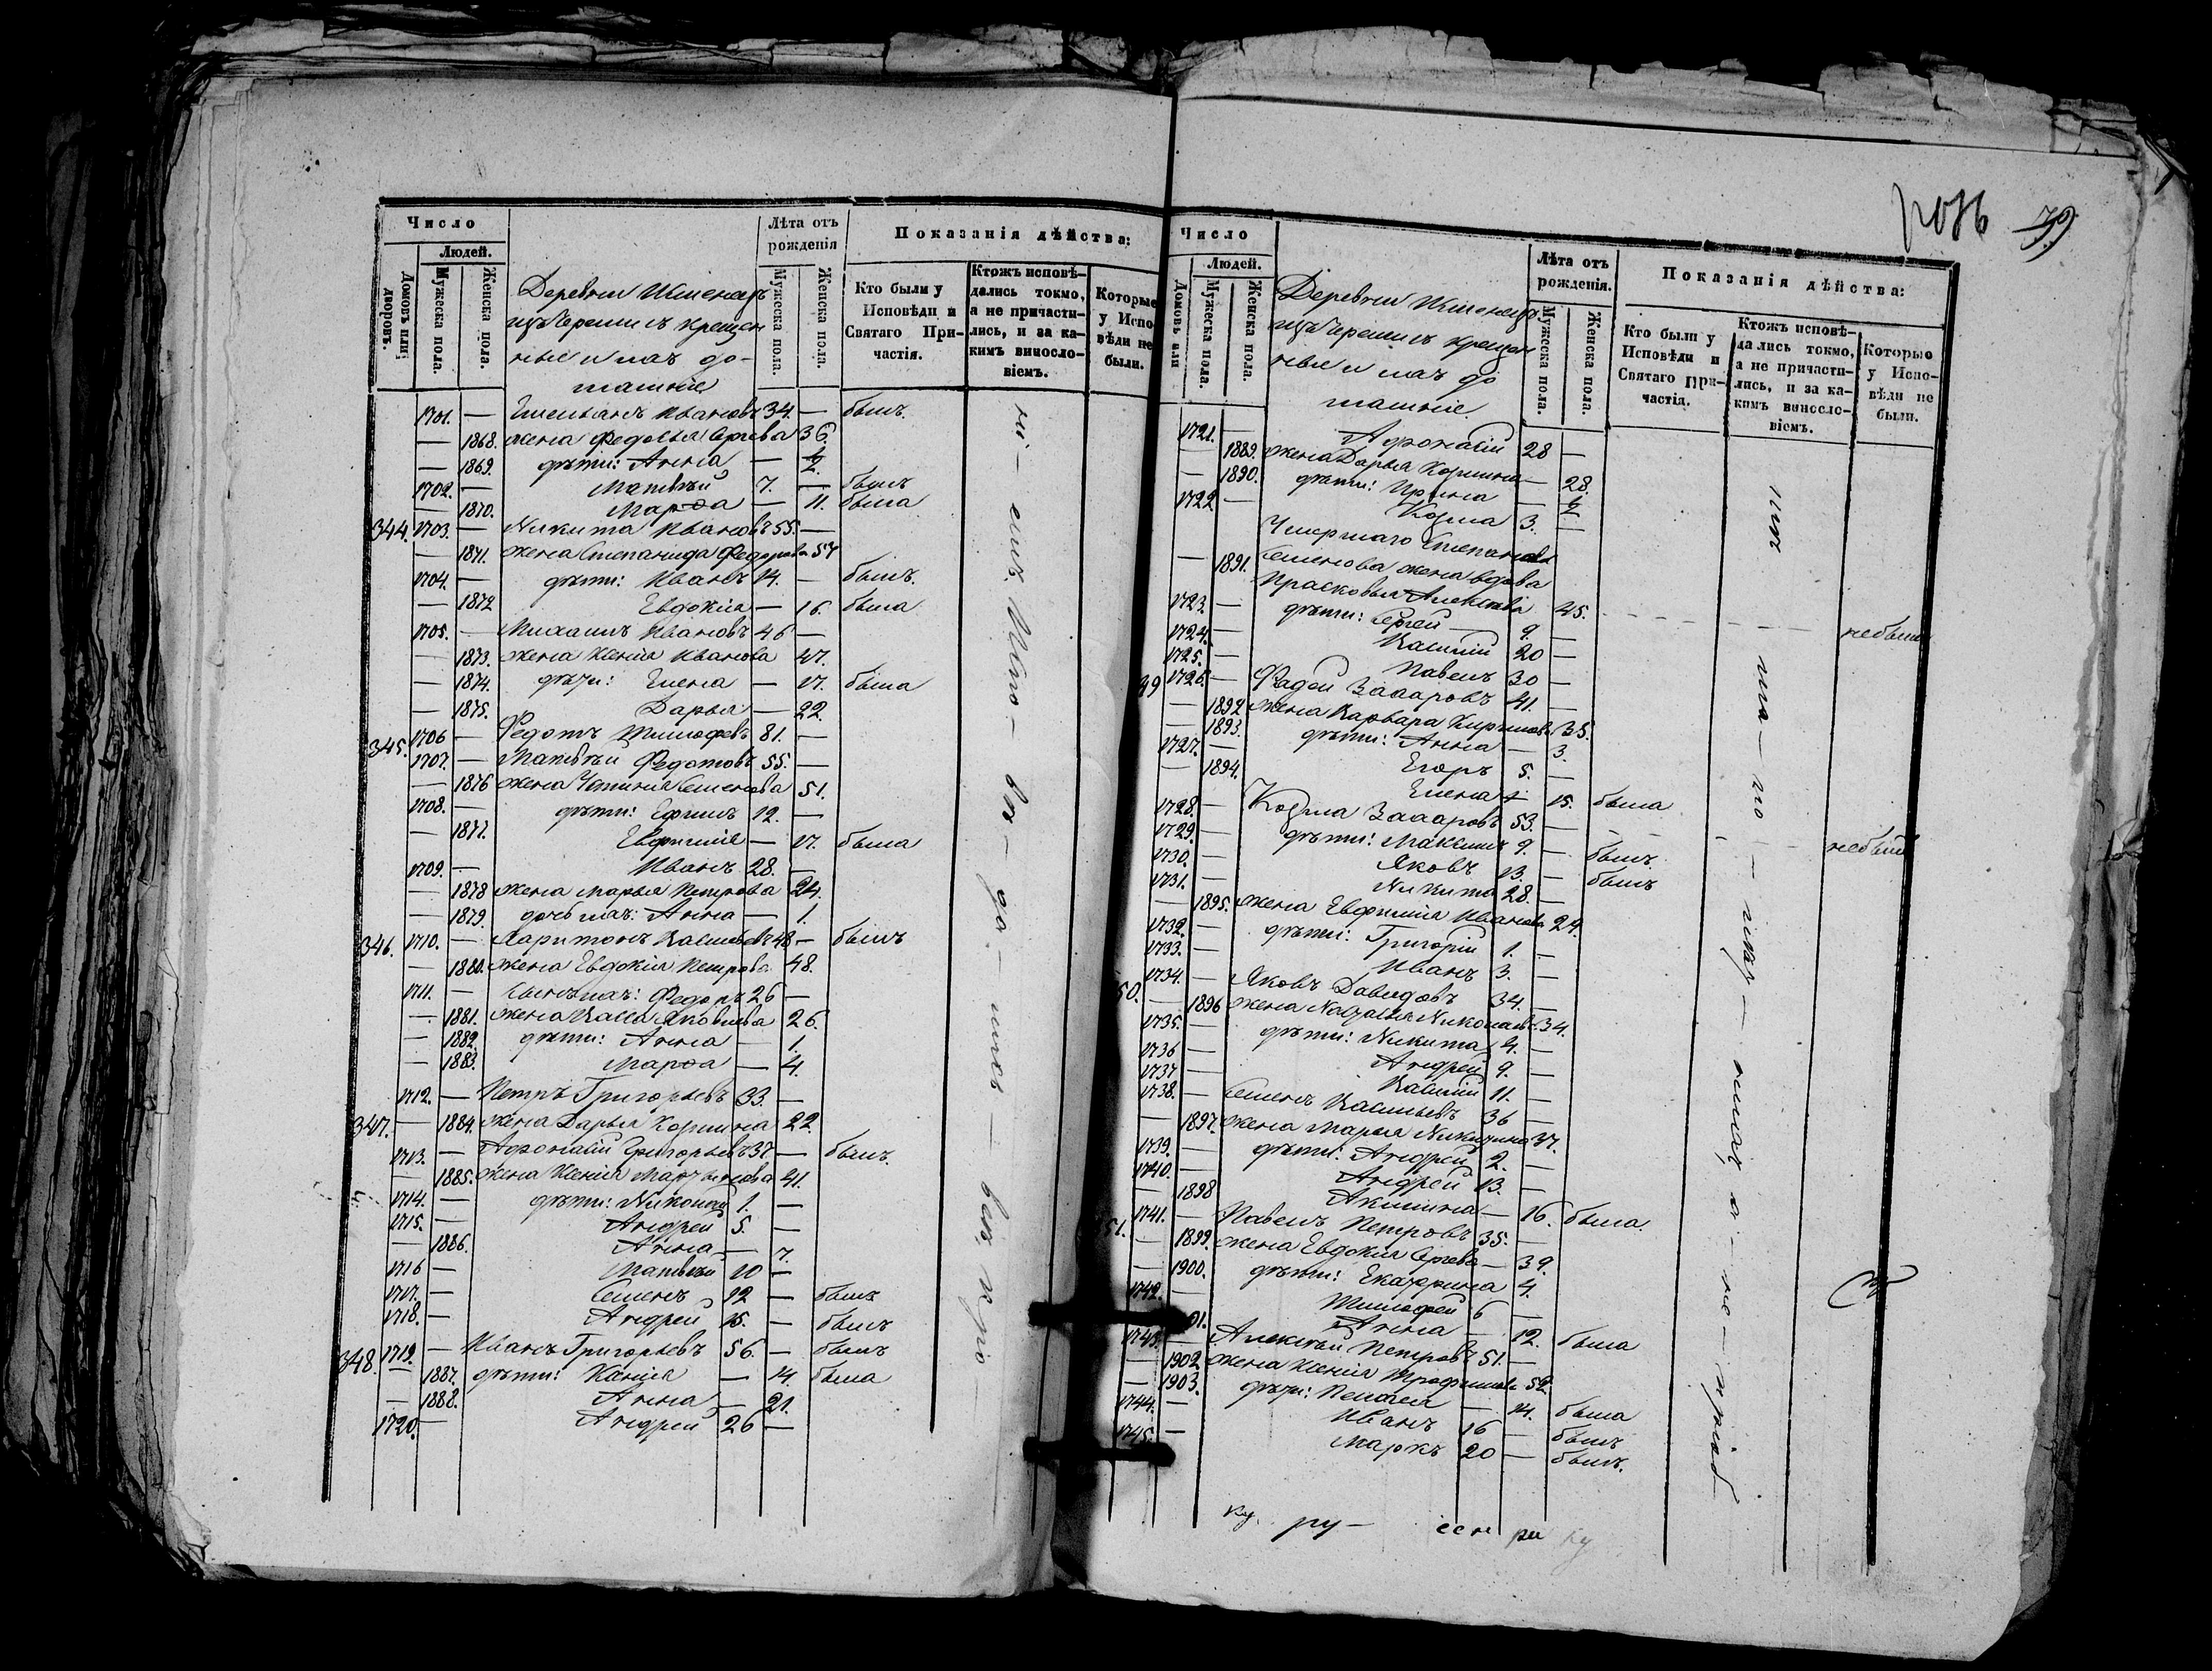 Число
Людей.
Домовъ или дворовъ.
Мужеска пола.
Женска пола.
Деревни
изъ Черемисъ крещен
ные и ихъ до-
машніе
Лѣта отъ рожденія
Мужеска пола.
Женска пола.
Показанія дѣйства:
Кто были у Исповѣди и Святаго При-частія.
Ктожъ исповѣ-дались токмо, а не причасти-лись, и за ка-кимъ винословіемъ.
Которые у Испо-вѣди не были.
1701. — Емельянъ Ивановъ 34. — былъ.
— 1868. жена Федосья Сергѣева 36.
— 1869. дѣти: Анна — ½.
1702. — Матвѣй 7. — былъ
— 1870. Марѳа — 11. была
344. 1703. — Никита Ивановъ 55. —
— 1871. жена Степанида Федорова 57
1704. — дѣти: Иванъ 14. — былъ.
— 1872 Евдокія — 16. была
1705. — Михаилъ Ивановъ 46 —
— 1873. жена Ксенія Иванова 47.
— 1874. дѣти: Елена — 17. была
— 1875. Дарья — 22.
345. 1706 — Федотъ Тимофеевъ 81. —
1707. — Матвѣй Федотовъ 55. —
— 1876 жена Устинія Семенова 51.
1708. — дѣти: Ефимъ 12. —
— 1877. Евфимія — 17. была
1709. — Иванъ 28. —
— 1878 жена Марья Петрова 24.
— 1879. дочь ихъ: Анна — 1.
346. 1710. — Харитонъ Васильевъ 48 — былъ
— 1880. жена Евдокія Петрова 48.
1711. — сынъ ихъ: Федоръ 26 —
— 1881. жена Васса Яковлева 26.
— 1882. дѣти: Анна — 1.
— 1883. Марѳа — 4.
1712. — Петръ Григорьевъ 33. —
347. — 1884. жена Дарья Козмина 22.
1713. — Афонасій Григорьевъ 37 — былъ.
— 1885. жена Ксенія Мартынова 41.
1714. — дѣти: Николай 1. —
1715. — Андрей 5. —
— 1886. Анна — 7.
1716 — Матвѣй 10 —
1717. — Семенъ 12 — былъ
1718. — Андрей 15. — былъ
348. 1719. — Иванъ Григорьевъ 56. — былъ
— 1887. дѣти: Ксенія — 14. была
— 1888. Анна — 21.
1720. — Андрей 26 —
79
Число
Людей.
Домовъ или
Мужеска пола.
Женска пола.
Деревни
изъ Черемисъ крещен
ные и ихъ до
машніе.
Лѣта отъ рожденія.
Мужеска пола.
Женска пола.
Показанія дѣйства:
Кто были у Исповѣди и Святаго При-частія.
Ктожъ исповѣ-дались токмо, а не причасти-лись, и за ка-кимъ винословіемъ.
Которые у Испо-вѣди не были.
1721. — Афонасій 28 —
— 1889. жена Дарья Козмина — 28.
— 1890. дѣти: Ирина — ½
1722 — Козма 3. —
Умершаго Степана
— 1891. Семенова жена вдова
Прасковья Алексѣева 45. небыла
1723. — дѣти: Сергей 9. —
1724. — Василій 20 —
1725. — Павелъ 30 —
49 1726. — Фадей Захаровъ 41. —
— 1892 жена Варвара Кирилова 35.
— 1893. дѣти: Анна — 3.
1727. — Егоръ 5. —
— 1894. Елена — 15. была
1728. — Козма Захаровъ 53. — небылъ
1729. — дѣти: Максимъ 9. — былъ.
1730. — Яковъ 13. — былъ
1731. — Никита 28. —
— 1895. жена Евфимія Иванова 24.
1732. — дѣти: Григорій 1. —
1733. — Иванъ 3. —
50. 1734. — Яковъ Давыдовъ 34. —
— 1896 жена Наталья Николаева 34.
1735. — дѣти: Никита 4. —
1736 — Андрей 9. —
1737 — Василій 11. —
1738. — Семенъ Васильевъ 36 —
— 1897. жена Марья Никитина 37.
1739. — дѣти: Андрей 2. —
1740. — Андрей 13. —
— 1898 Акилина — 16. была
51. 1741. — Павелъ Петровъ 35. —
— 1899. жена Евдокія Сергѣева — 39.
— 1900. дѣти: Екатерина 4.
1742. — Тимофей 6 —
01. Анна — 12. была
1743. — Алексѣй Петровъ 51. —
— 1902 жена Ксенія Трофимова 52.
— 1903. дѣти: Пелагея — 14. была
1744. — Иванъ 16 — былъ
1745. — Маркъ 20 — былъ.
ку. ру —